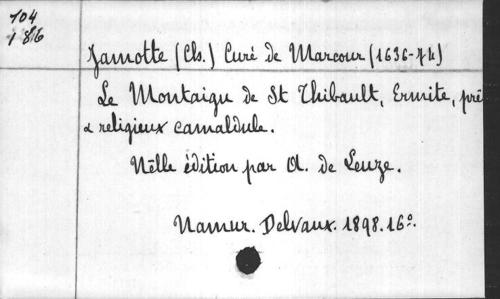 104
186
Jamotte (Ch.) Curé de Marcour (1636-74)
Le Montaigu de St Thibault, Ermite, prê
& religieux camaldule.
Nelle édition par A. de Leuze.
Namur. Delvaux. 1898. 16°.